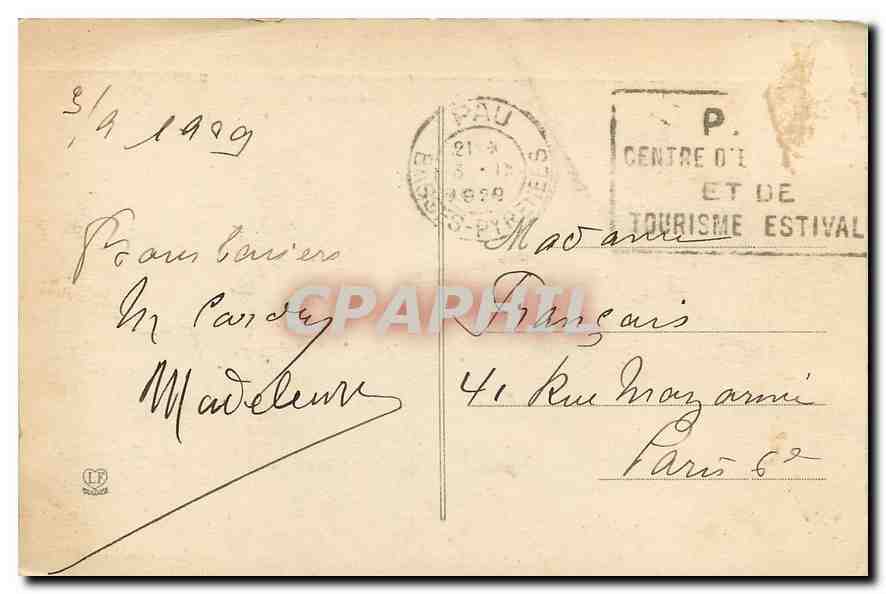 3/9 1929
Bons baisers
M Cardey
Madeleine
PAU
21 *
3 - IX
1929
BASSES-PYRENEES
P.
CENTRE D'E
ET DE
TOURISME ESTIVAL
Madame
Français
41 Rue Mazarine
Paris 6e
CPAPHIL
LF